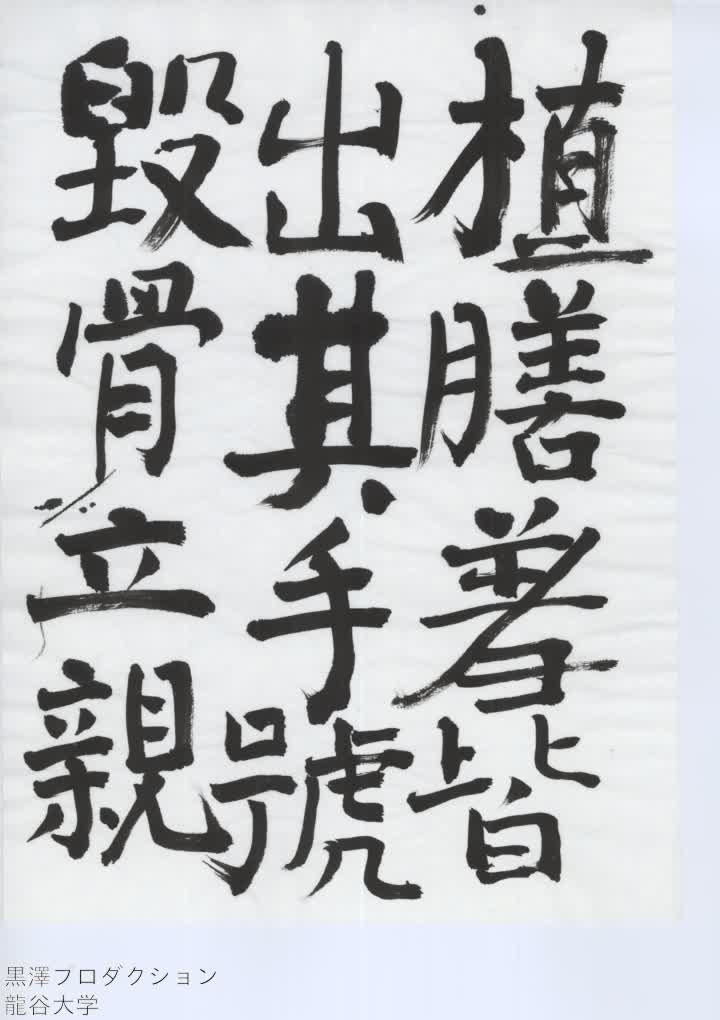 植膳羞皆
出其手號
毀骨立親
黒澤プロダクション
龍谷大学